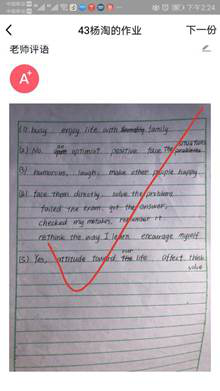 下午2:24
43杨淘的作业
下一份
老师评语
A+
(1) busy enjoy life with family
(2) No. an optimist positive face the situations problems
(3) humorous, laugh, make other people happy.
(4) face them directly, solve the problem
failed the exam, got the answer,
checked my mistakes, remember it
rethink the way I learn encourage myself
(5) Yes, attitude toward our the life affect think
solve